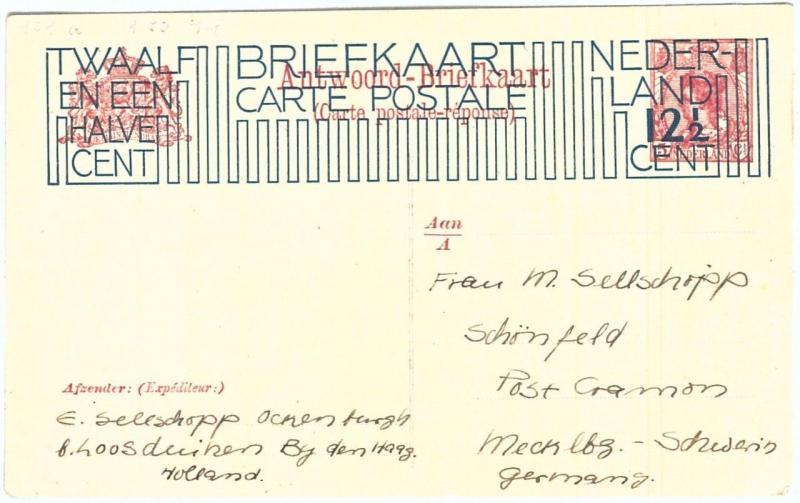 TWAALF
EN EEN
HALVE
CENT
BRIEFKAART
CARTE POSTALE
NEDER-
LAND
12½
CENT
Antwoord-Briefkaart
(Carte postale-réponse)
NEDERLAND
Aan
A
Frau M. Sellschopp
Schönfeld
Post Cramon
Mecklbg. - Schwerin
Germany.
Afzender: (Expéditeur:)
E. Sellschopp Ockenburgh
b. Loosduinen By den Haag.
Holland.